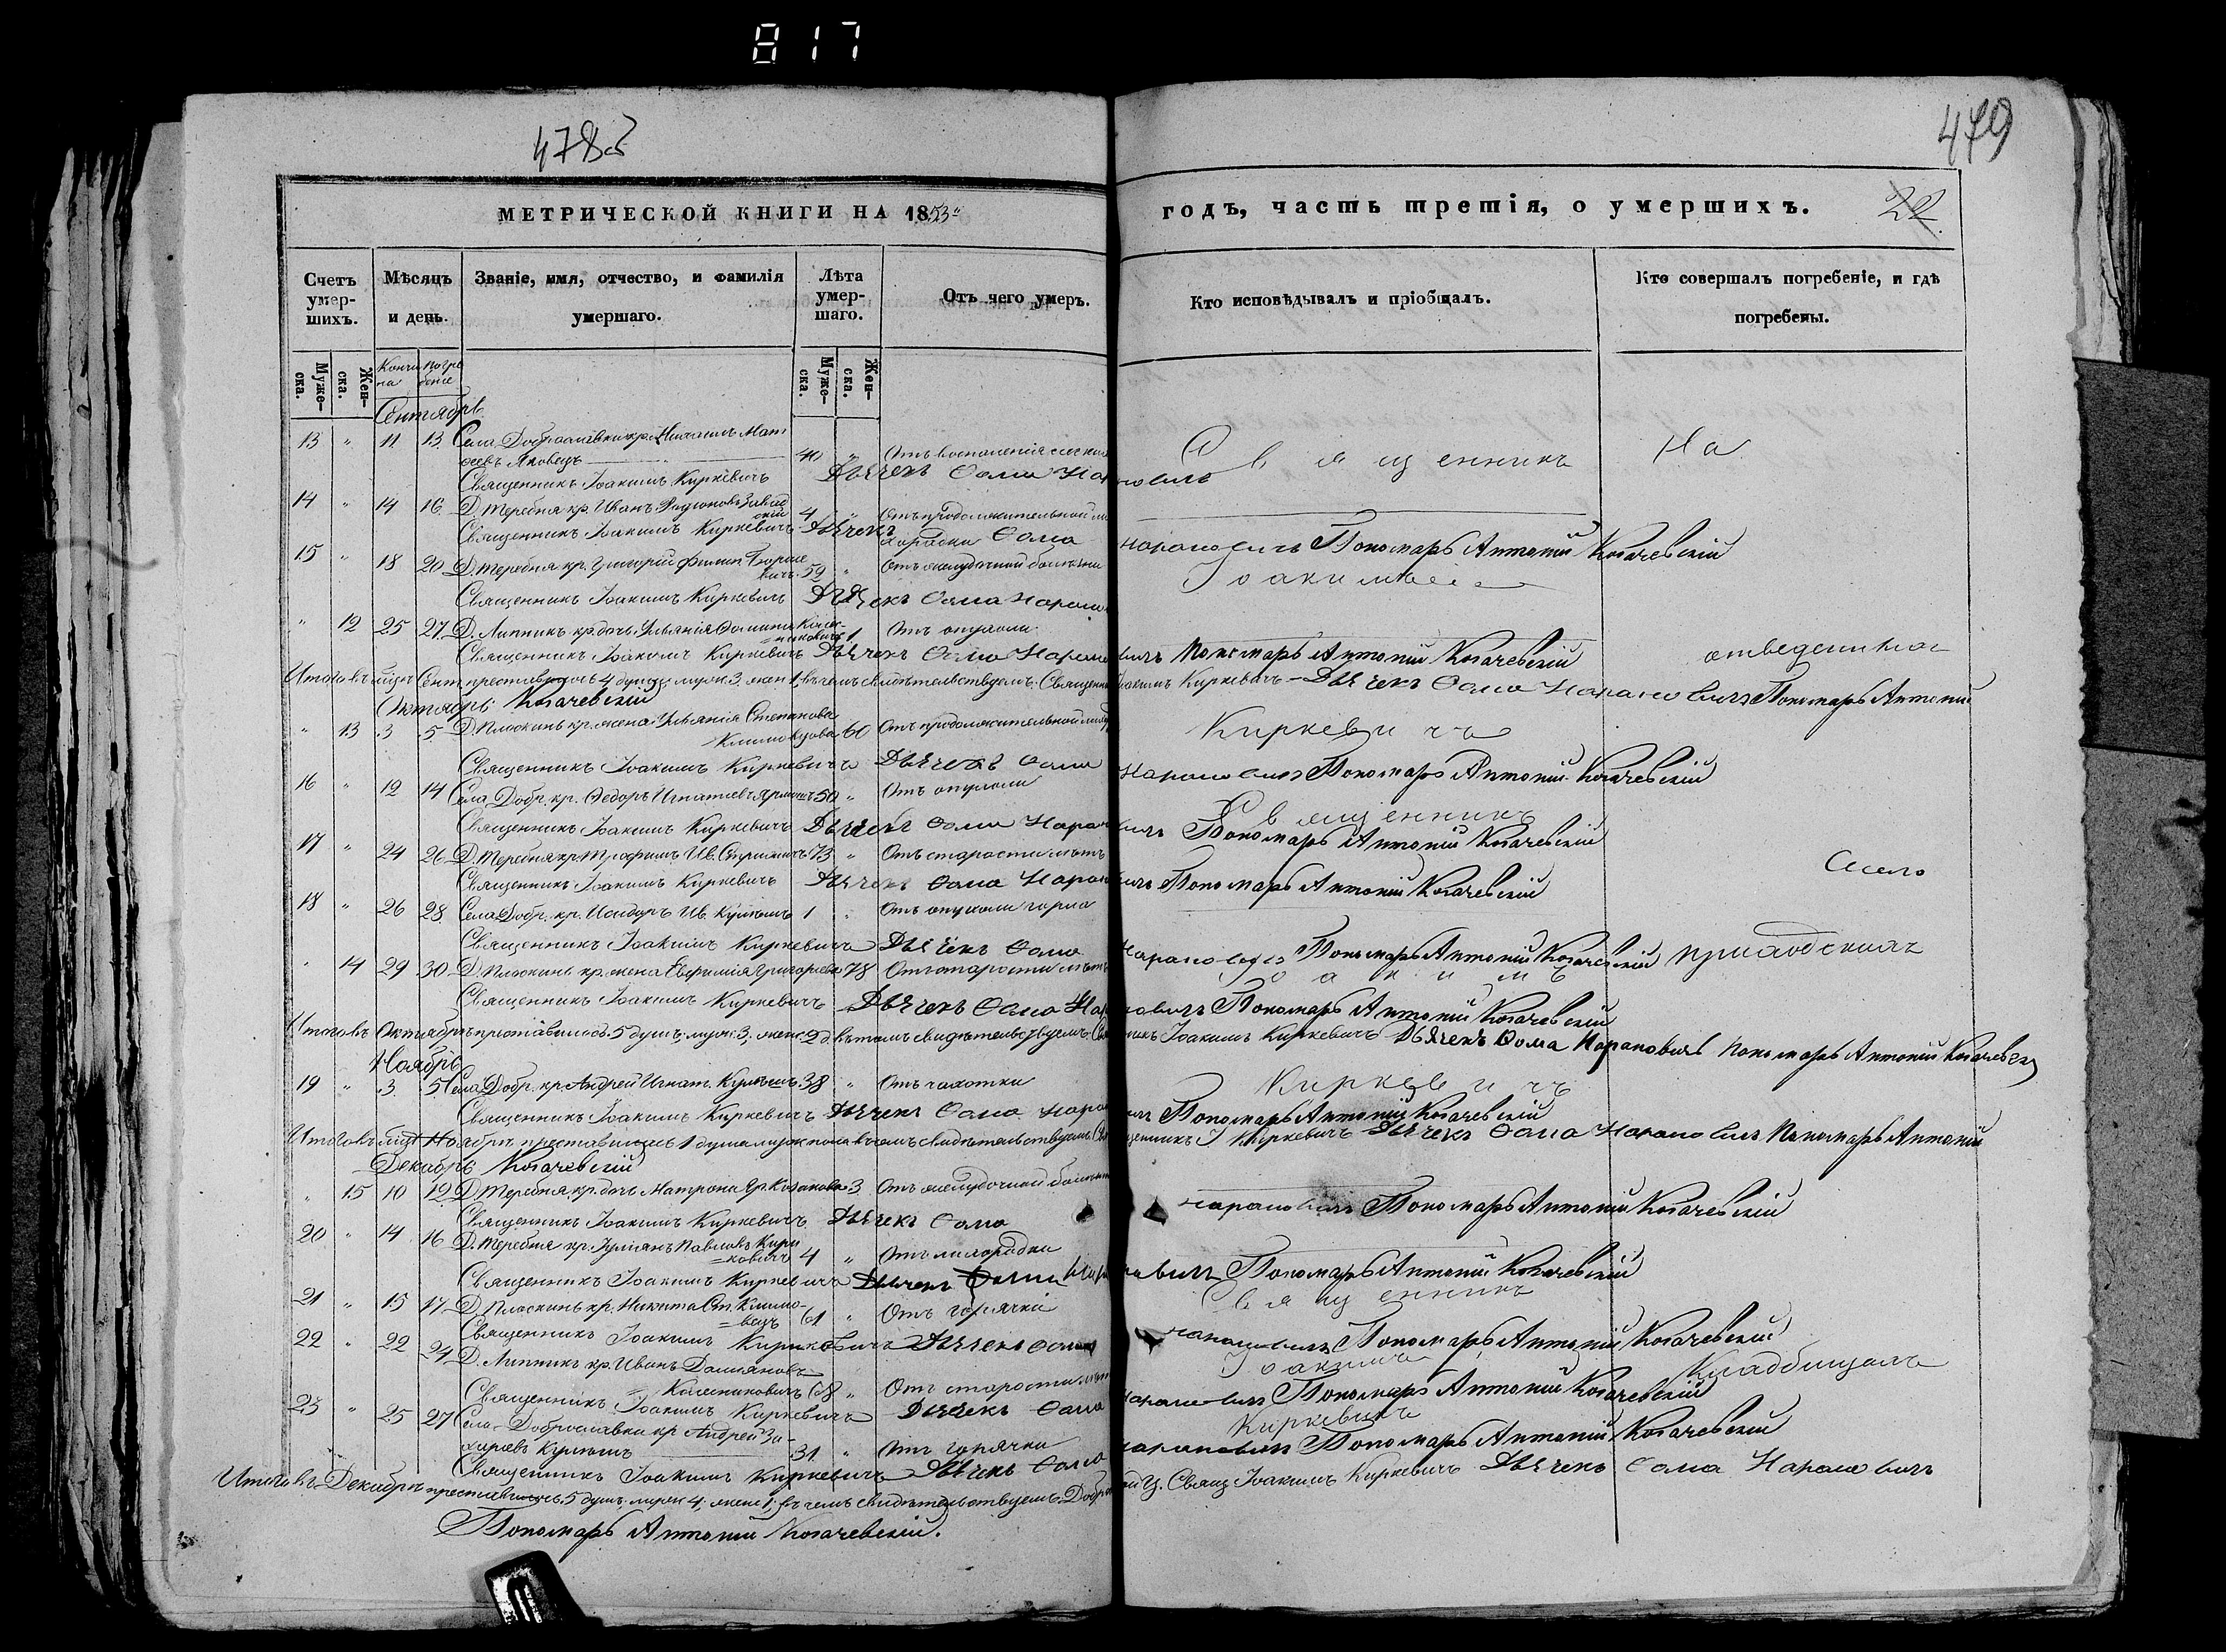 817
478 об
479
МЕТРИЧЕСКОЙ КНИГИ НА 1853
годъ, часть третія, о умершихъ.
22
Счетъ умер-шихъ.
Мѣсяцъ и день.
Званіе, имя, отчество, и фамилія умершаго.
Лѣта умер-шаго.
Отъ чего умеръ.
Кто исповѣдывалъ и пріобщалъ.
Кто совершалъ погребеніе, и гдѣ погребены.
Муже-ска.
Жен-ска.
Кончина
Погребеніе
Муже-ска.
Жен-ска.
Сентябрь
13 " 11 13 Села Доброславки кр. Михаилъ Мат
феевъ Яковецъ 40 " Отъ воспаленія
Священникъ
На
Священникъ Іоакимъ Киркевичъ Дьячекъ Фома
14 " 14 16 Д. Теребня кр. Иванъ Родіоновъ Завад
скій 4 " Отъ продолжительной
Священникъ Іоакимъ Киркевичъ Дьячекъ Фома Нарановичъ Пономарь Антоній Когачевскій
15 " 18 20 Д. Теребня кр. Григорій Филип.
59 " Отъ желудочной болѣзни
Іоакимъ
Священникъ Іоакимъ Киркевичъ Дьячекъ Фома
" 12 25 27 Д. Липникъ кр. дочь Ульянія Фомина Колес-
никовичъ 1 Отъ опухоли
Священникъ Іоакимъ Киркевичъ Дьячекъ Фома Нарановичъ Пономарь Антоній Когачевскій
отведенномъ
Итого въ мцѣ Сент. преставилось 4 душъ, муж. 3. жен. 1, въ чемъ свидѣтельствуемъ: Священникъ Іоакимъ Киркевичъ Дьячекъ Фома Нарановичъ Пономарь Антоній
Когачевскій
Октябрь
" 13 3 5 Д. Плоскинь кр. жена Ульянія Степанова
Климовцова 60 Отъ продолжительной
Киркевичъ
Священникъ Іоакимъ Киркевичъ Дьячекъ Фома Нарановичъ Пономарь Антоній Когачевскій
16 " 12 14 Села Добр. кр. Ѳедоръ Игнатіевъ 50 " Отъ опухоли
Священникъ
Священникъ Іоакимъ Киркевичъ Дьячекъ Фома Нарановичъ Пономарь Антоній Когачевскій
17 " 24 26 Д. Теребня кр. Трофимъ Ив. 73 " Отъ старости лѣтъ
Село
Священникъ Іоакимъ Киркевичъ Дьячекъ Фома Нарановичъ Пономарь Антоній Когачевскій
18 " 26 28 Села Добр. кр. Исидоръ Ив. Кулешъ 1 " Отъ опухоли горла
Священникъ Іоакимъ Киркевичъ Дьячекъ Фома Нарановичъ Пономарь Антоній Когачевскій
приходскомъ
" 14 29 30 Д. Плоскинь кр. жена Евфимія Григорьева 78 Отъ старости лѣтъ
Іоакимъ
Священникъ Іоакимъ Киркевичъ Дьячекъ Фома Нарановичъ Пономарь Антоній Когачевскій
Итого въ Октябрѣ преставилось 5 душъ, муж. 3, женс. 2 въ томъ свидѣтельствуемъ: Священникъ Іоакимъ Киркевичъ Дьячекъ Фома Нарановичъ Пономарь Антоній Когачевскій
Ноябрь
19 " 3 5 Села Добр. кр. Андрей Игнат. Кулешъ 38 " Отъ чахотки
Киркевичъ
Священникъ Іоакимъ Киркевичъ Дьячекъ Фома Нарановичъ Пономарь Антоній Когачевскій
Итого въ мцѣ Ноябрѣ преставилась 1 душа муж. пола въ чемъ свидѣтельствуемъ: Священникъ І Киркевичъ Дьячекъ Фома Нарановичъ Пономарь Антоній
Когачевскій
Декабрь
" 15 10 12 Д. Теребня кр. дочь Матрона Гр. Козакова 3 Отъ желудочной болѣзни
Священникъ Іоакимъ Киркевичъ Дьячекъ Фома Нарановичъ Пономарь Антоній Когачевскій
20 " 14 16 Д. Теребня кр. Іуліанъ Павловъ Кири
ковичъ 4 " Отъ лихорадки
Священникъ Іоакимъ Киркевичъ Дьячекъ Фома Нарановичъ Пономарь Антоній Когачевскій
Священникъ
21 " 15 17 Д. Плоскинь кр. Никита Ст. Климо-
вецъ 61 " Отъ горячки
Священникъ Іоакимъ Киркевичъ Дьячекъ Фома Нарановичъ Пономарь Антоній Когачевскій
22 " 22 24 Д. Липникъ кр. Иванъ Даміановъ
Колесниковичъ 68 " Отъ старости лѣтъ
Іоакимъ
Кладбищахъ
Священникъ Іоакимъ Киркевичъ Дьячекъ Фома Нарановичъ Пономарь Антоній Когачевскій
23 " 25 27 Села Доброславки кр. Андрей За-
харіевъ Кулешъ 31 " Отъ горячки
Киркевичъ
Священникъ Іоакимъ Киркевичъ Дьячекъ Фома Нарановичъ Пономарь Антоній Когачевскій
Итого въ Декабрѣ преставилось 5 душъ, муж. 4, женс. 1, въ чемъ свидѣтельствуемъ: Добр Ц. Свящ. Іоакимъ Киркевичъ Дьячекъ Фома Нарановичъ
Пономарь Антоній Когачевскій.